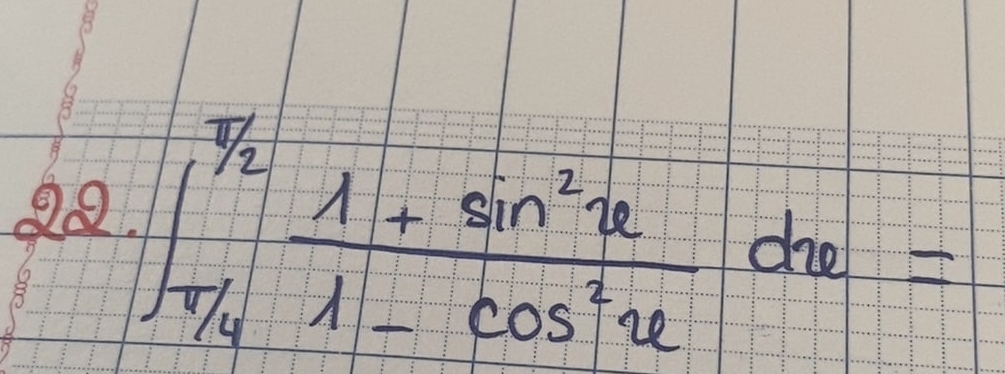 22. ∫_{π/4}^{π/2} (1 + sin²x)/(1 - cos²x) dx =